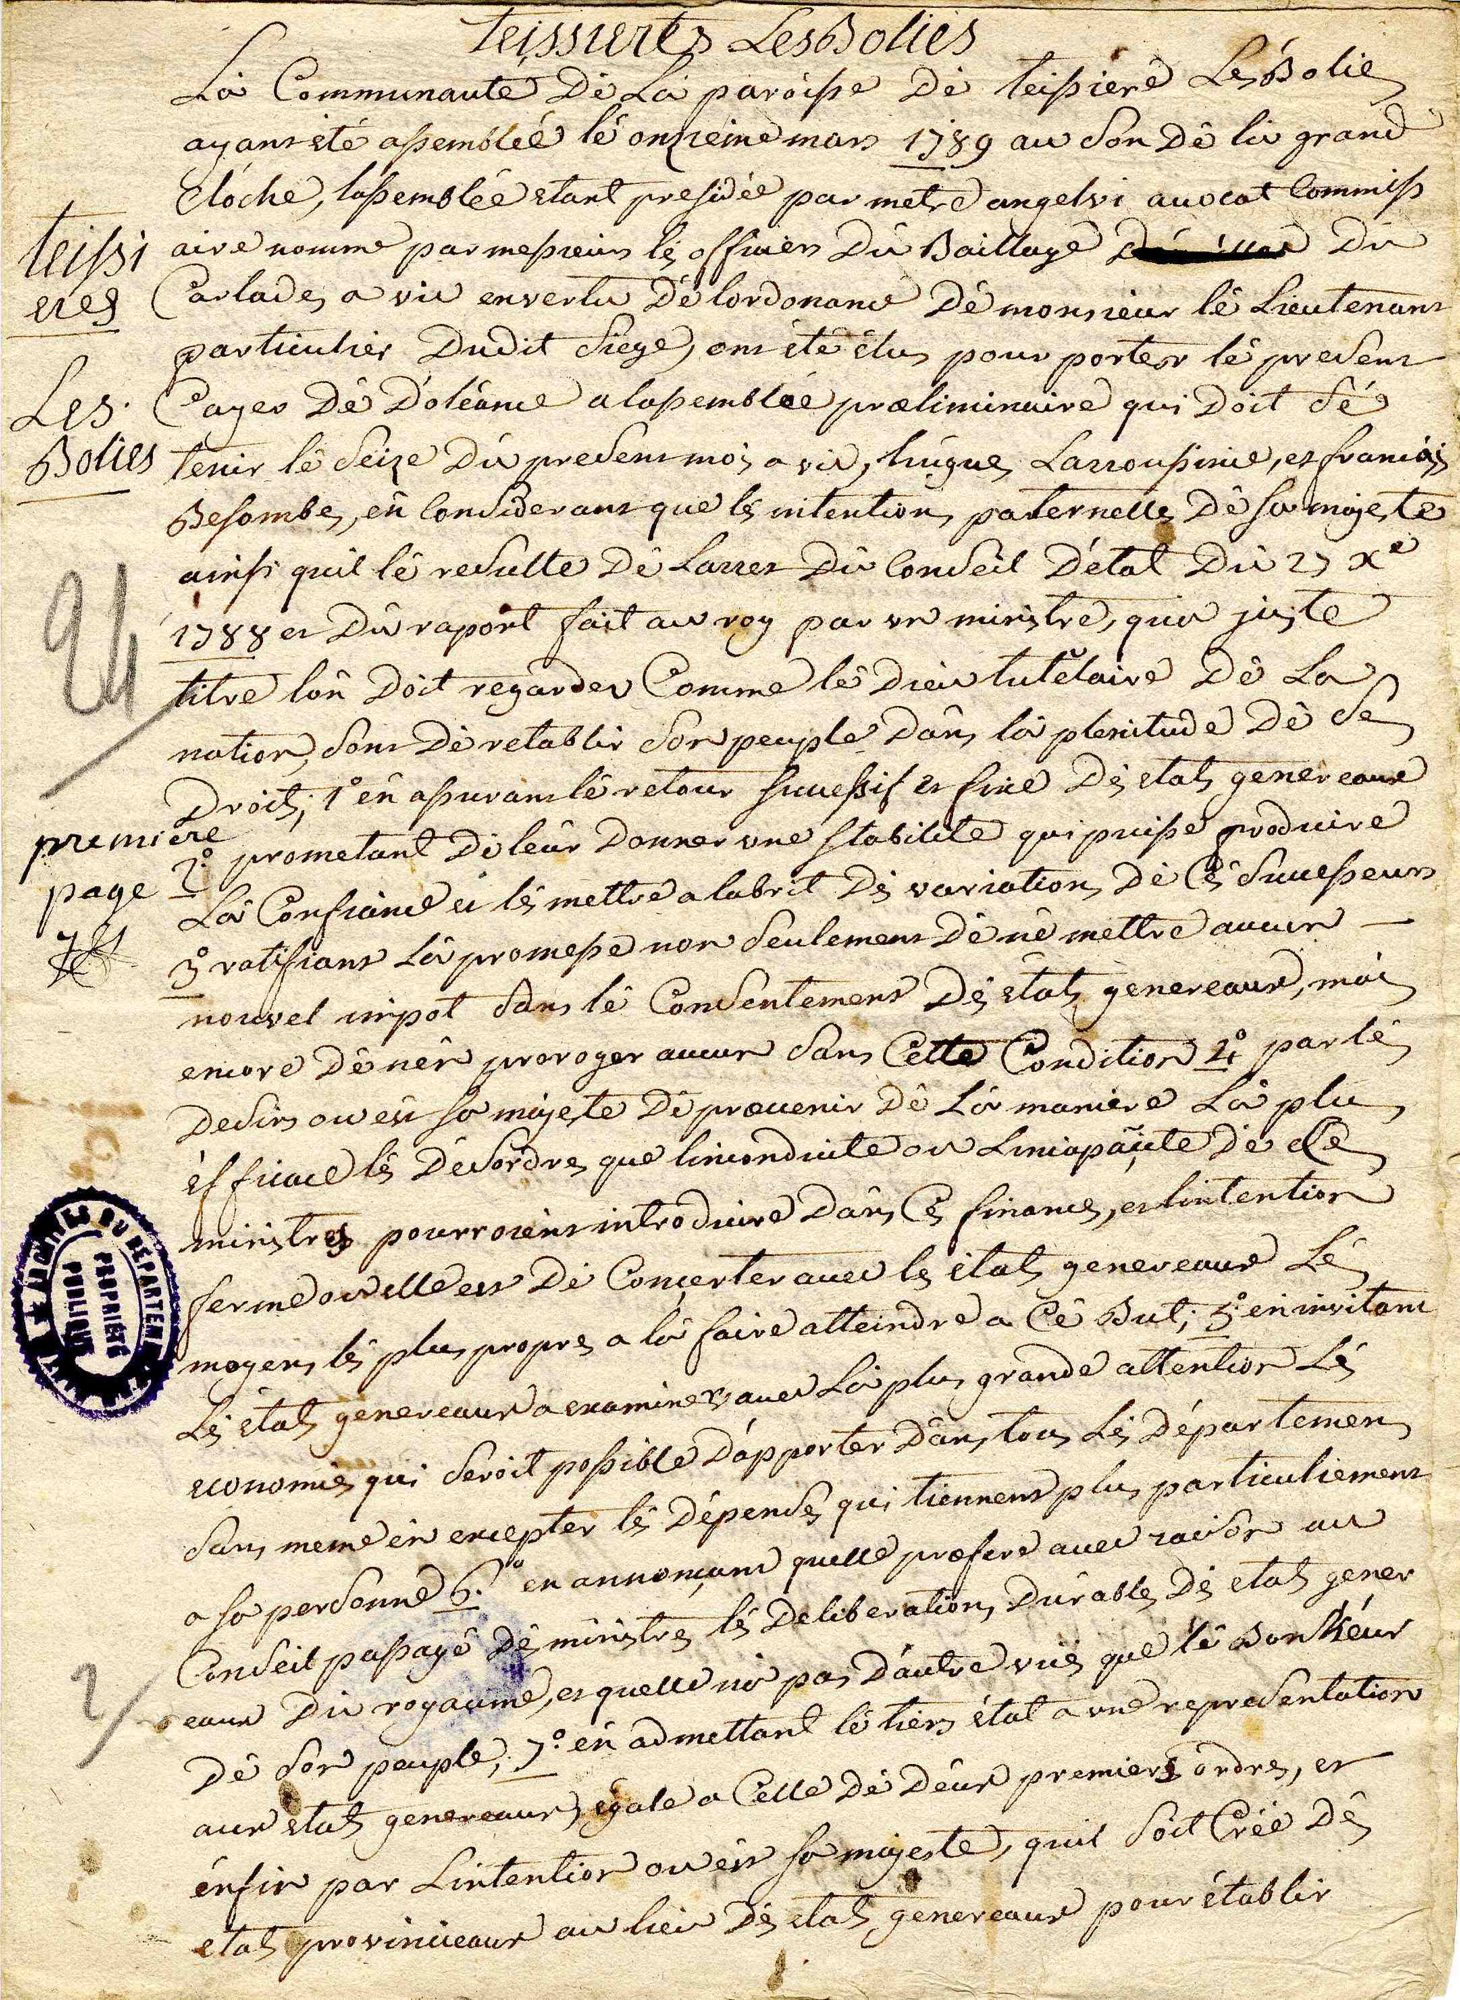 teissieres Les Bolies
La Communauté Dè La paroisse Dè teissiere Les Bolies
ayant été assemblée lé onzieme mars 1789 au son Dê la grand
Clôche, lassemblée etant presidée par metre angelvi avocat Commiss
aire nommé par messieurs lés officiers Dû Baillage Du
Carlades a vic en vertu Dè lordonance Dé monsieur lê Lieutenant
particulier Dudit siege, ont été élus pour porter lé present
Cayer Dê Doléance a lassemblée præliminaire qui Doit sé
tenir lé seize Dù present mois a vic, hugues Larroussinie, et francois
Besombes, en Considerant que lés intentions paternelles Dê sa majesté
ainsi quil lê resulte Dê Larret Dù Conseil D'état Dù 27 Xe
1788 et Dû raport fait au roy par un ministre, qua juste
titre lon Doit regarder Comme lê Dieu tutélaire Dê La
nation, sont Dè retablir son peuple Dans là plenitude Dê sés
Droits; 1° ên assurant lé retour successif et fixe Dés etats genereaux
2° prometant De leur Donner une stabilité qui puisse produire
La Confiance et lés mettre a labrit Dés variations Dè Cés successeurs
3° ratifiant Là promesse non seulement Dê nê mettre aucun
nouvel impot sans lê Consentement Dés états genereaux, mais
encore Dê nên proroger aucun sans Cette Condition 4° par lés
Desirs ou est sa majesté Dê prævenir Dê Là maniere Là plus
éfficace lés Désordres que linconduite ou Lincapacité Dè Ces
ministres pourroient introduire Dans Cés finances, et lintention
ferme ou elle est Dé Concerter avec lés états genereaux Lés
moyens lés plus propres a là faire atteindre a Cé But; 5° en invitant
Lés états genereaux a examiner avec Là plus grande attention Lés
economies qui seroit possible D'apporter Dans tous Lés Départemens
sans meme en excepter lés Dépenses qui tiennent plus particuliement
a sa personne 6° en annonçant quelle præfere avec raison au
Conseil passagé Dés ministres lés Deliberations Durables Dés etats gener
eaux Du royaume, et quelle na pas D'autre vüe que lê Bonheur
Dê son peuple; 7° ên admettant lé tiers état a une representation
aux etats genereaux, égale a Celle Dé Deux premiers ordres, et
énfin par Lintention ou est sa majesté, quil soit Créé Dés
etats provinceaux au lieu Dés etats genereaux pour établir
teissi
eres
Les
Bolies
24
premiere
page
2
ARCHIVES DU DÉPARTEMENT
PROPRIÉTÉ
PUBLIQUE